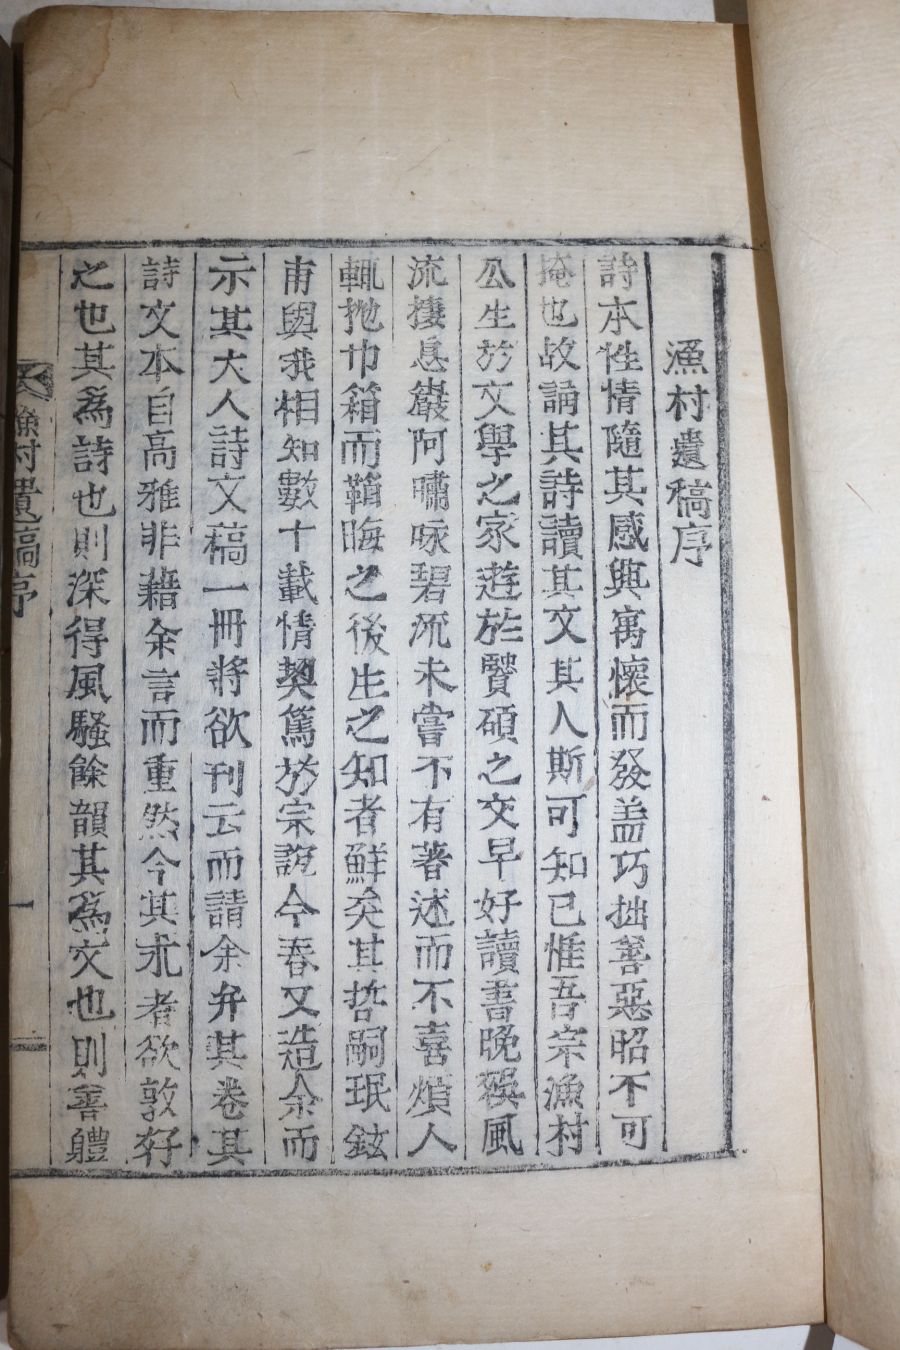 漁村遺稿序
詩本性情隨其感與寓懷而發盖巧拙善惡昭不可
掩也故誦其詩讀其文其人斯可知已惟吾宗漁村
公生於文學之家遊於賢碩之交早好讀書晩爲風
流捿息巖阿嘯咏碧流未嘗不有著述而不喜煩人
輒抛巾箱而韜晦之後生之知者鮮矣其哲嗣珉鉉
甫與我相知數十載情契篤於宗說今春又造余而
示其大人詩文稿一冊將欲刊云而請余弁其卷其
詩文本自高雅非藉余言而重然今其求者欲敦好
之也其為詩也則深得風騷餘韻其為文也則善軆
漁村遺稿序
一